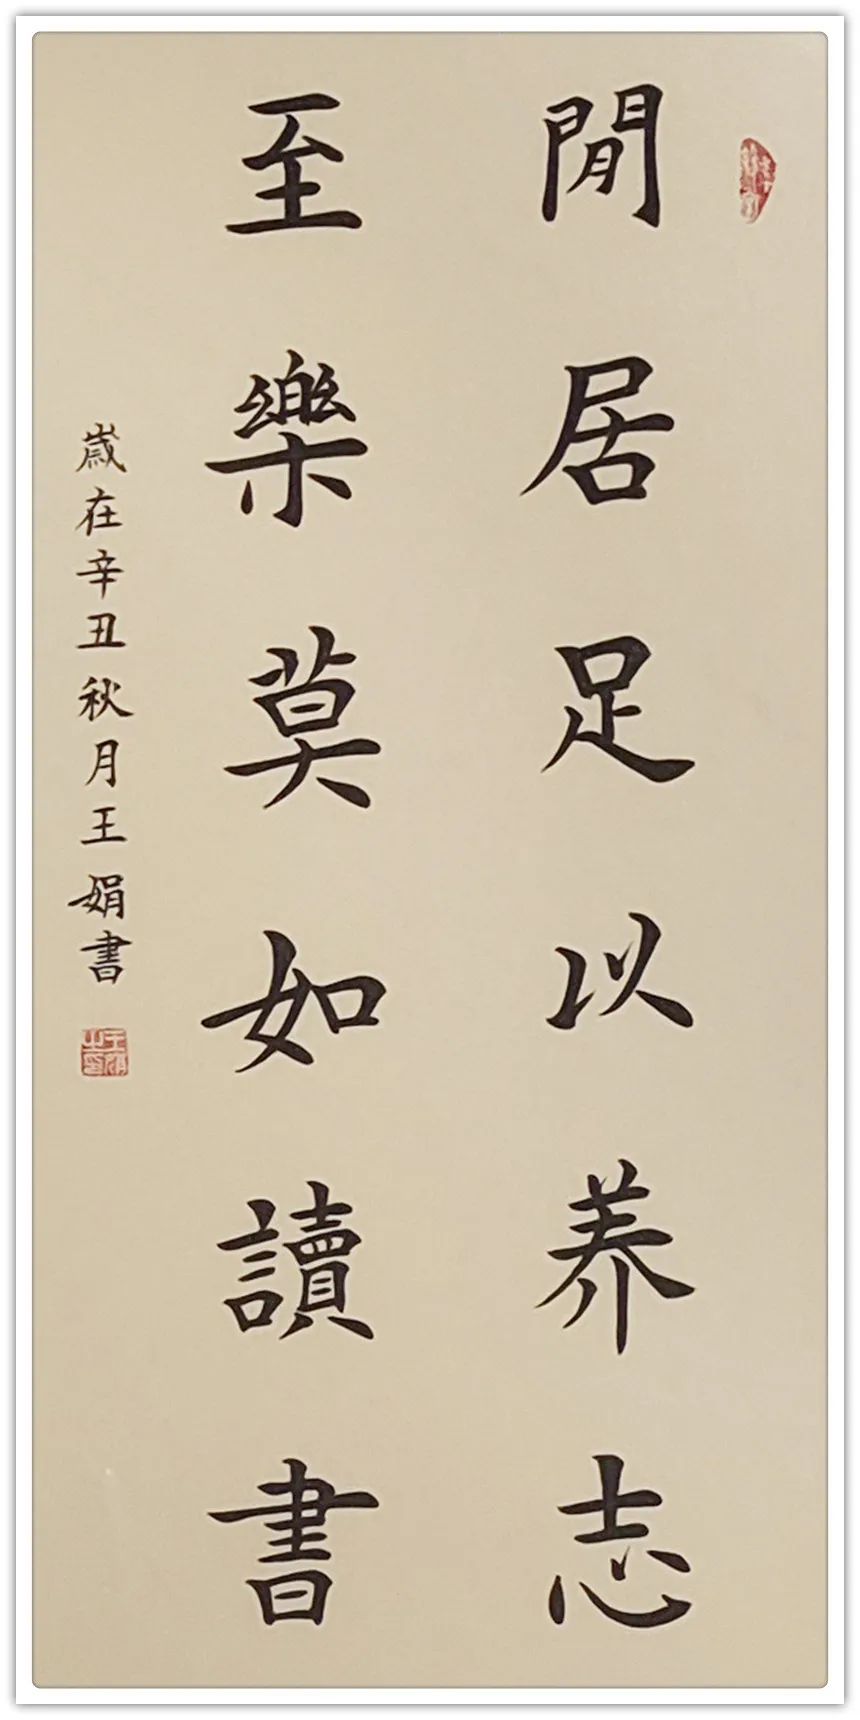 閒居足以养志
至樂莫如讀書
歲在辛丑秋月王娟書
王娟之印